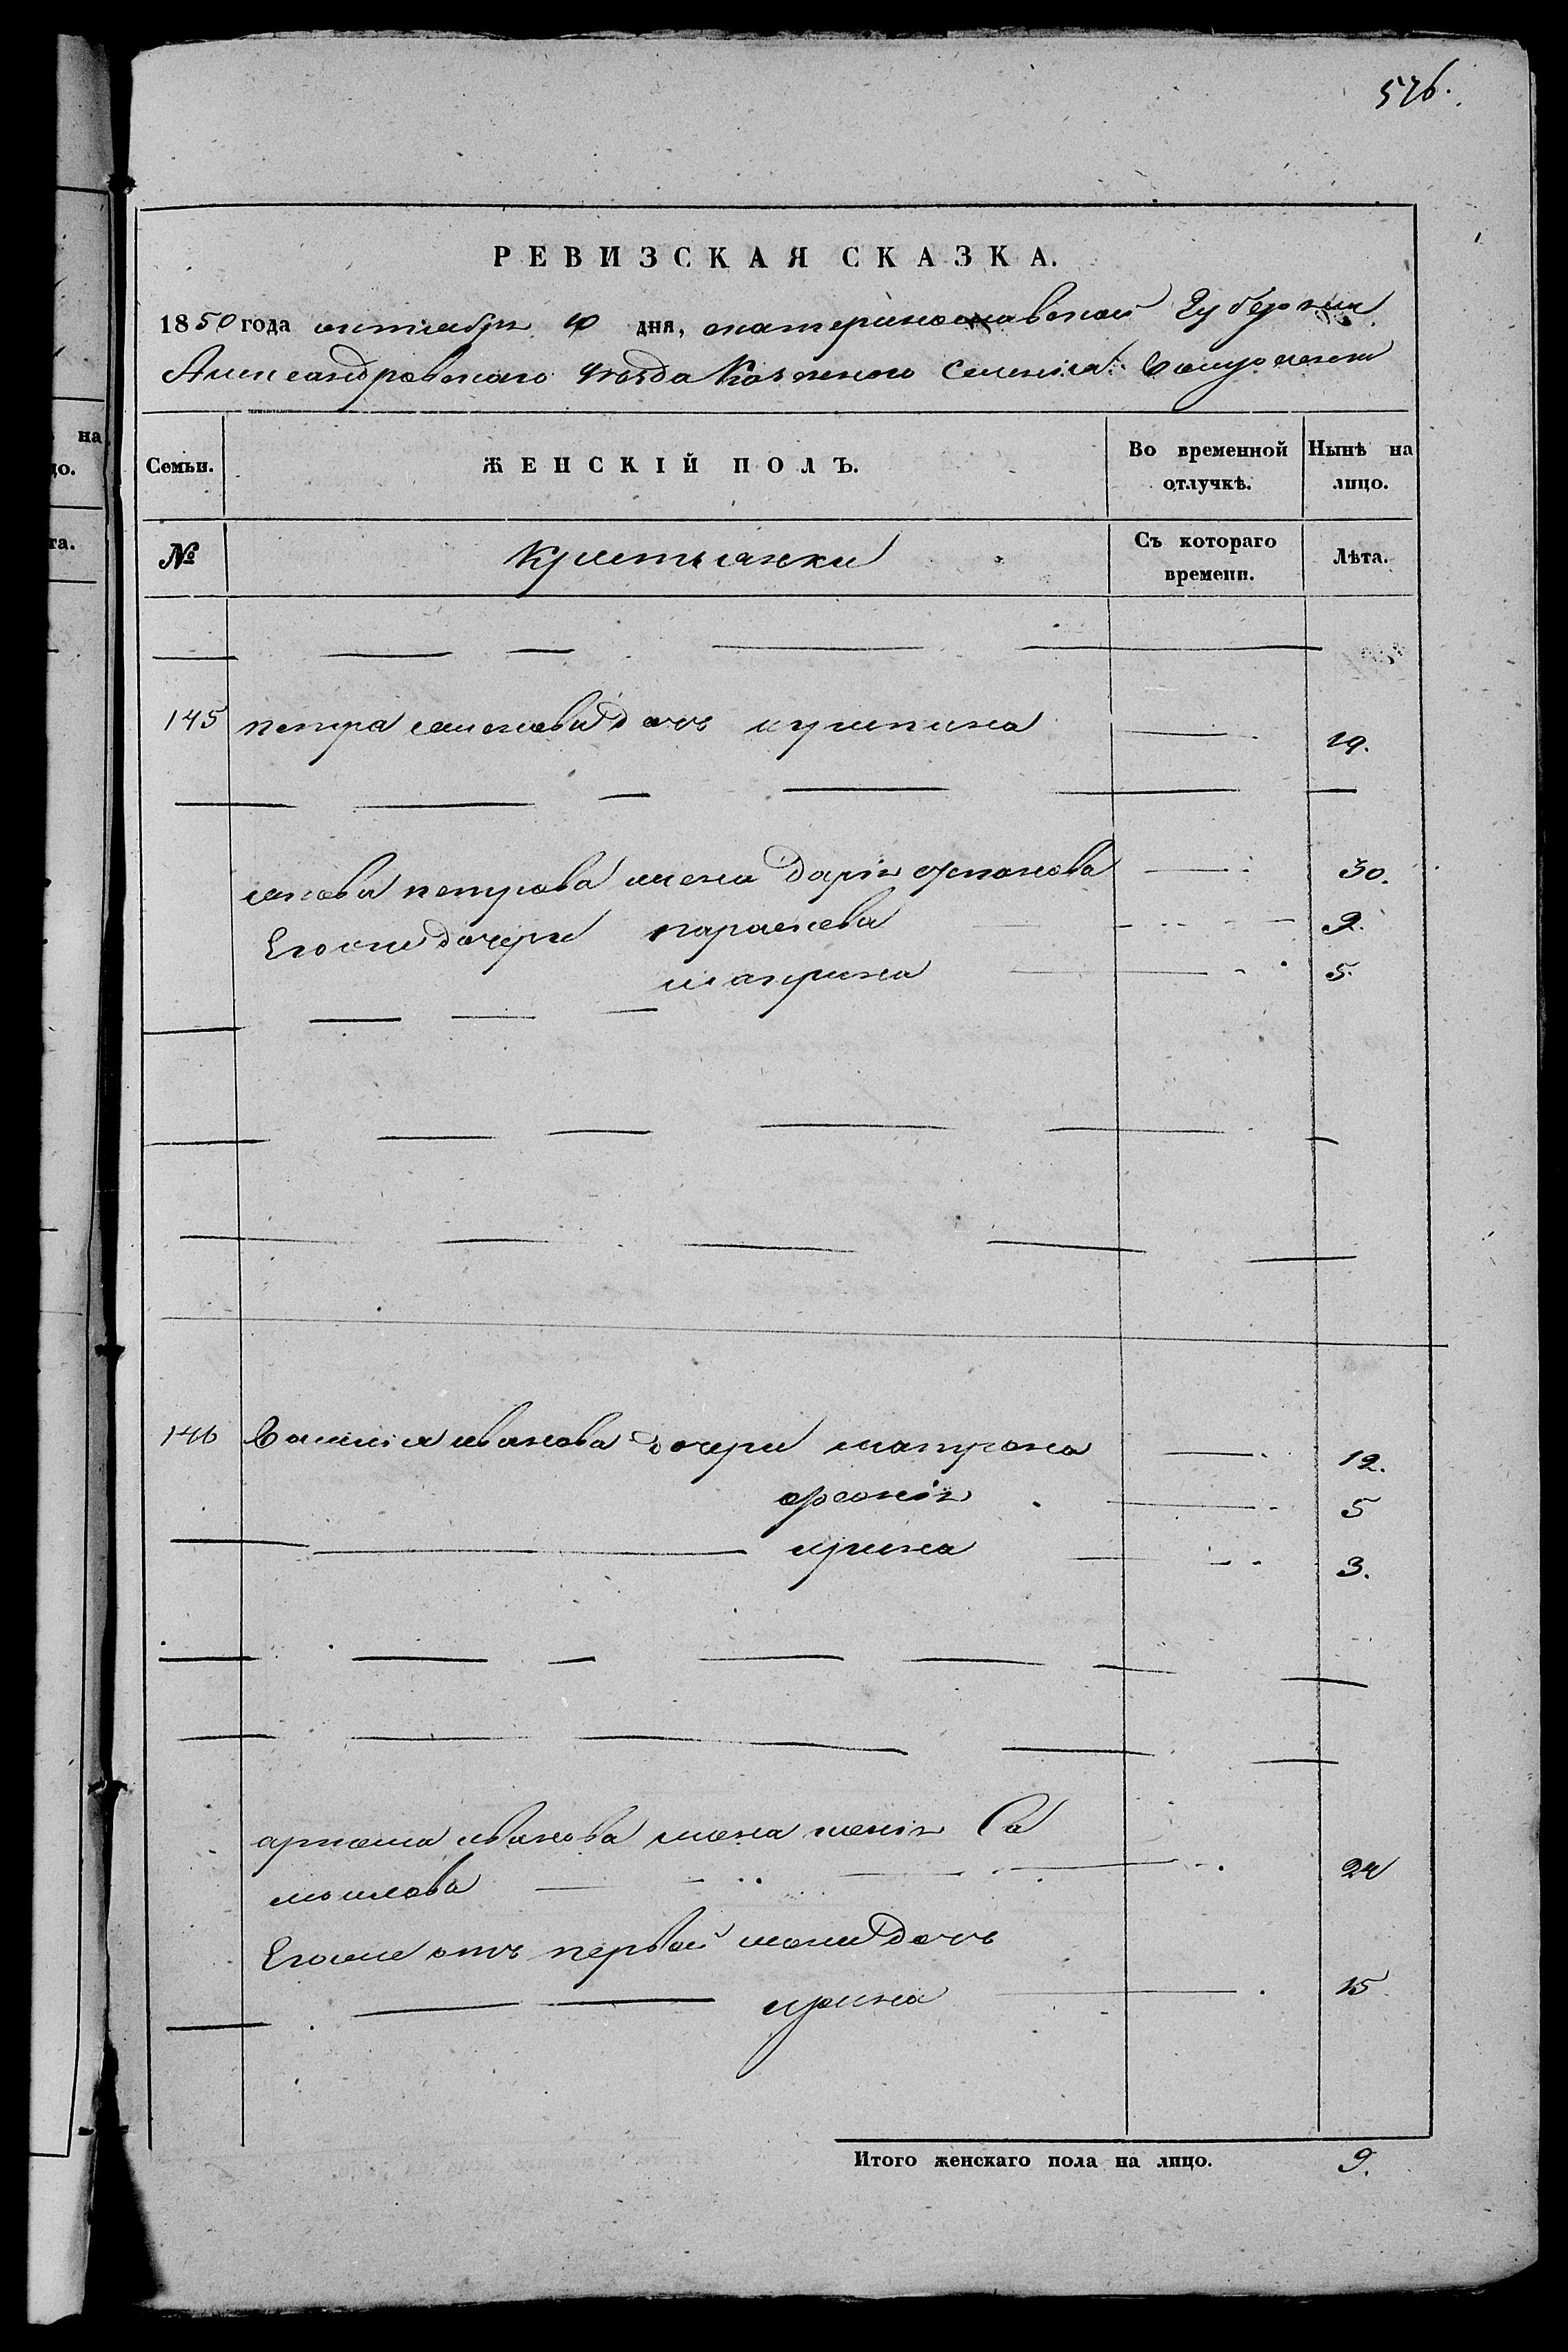 576.
РЕВИЗСКАЯ СКАЗКА.
1850 года октября 10 дня, екатеринославской Губернии
Александровского уезда Казенного Селенія
на
Семьи.
ЖЕНСКІЙ ПОЛЪ.
Во временной отлучкѣ.
Нынѣ на лицо.
№
Крестьянки
Съ котораго времени.
Лѣта.
145 петра семенова дочь 19.
якова петрова жена Дарія 30.
Его дочери парасковя 9.
5.
146 Василія иванова дочери матрона 12.
5
ирина 3.
артема иванова жена Са
мойлова 24
Его же отъ первой жены дочь
ирина 15
Итого женскаго пола на лицо. 9.